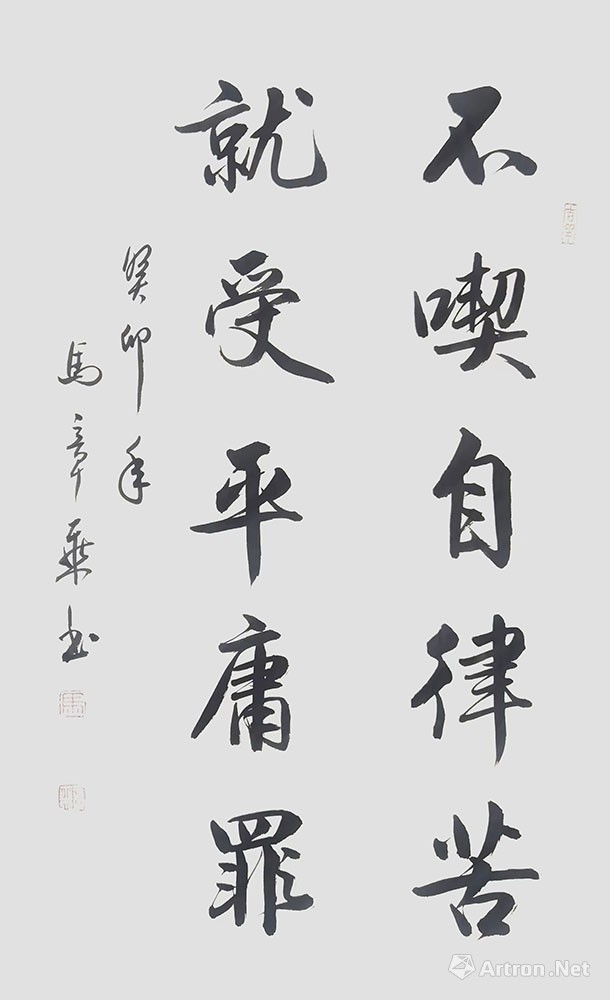 不喫自律苦
就受平庸罪
癸卯年
馬章乘书
Artron.Net